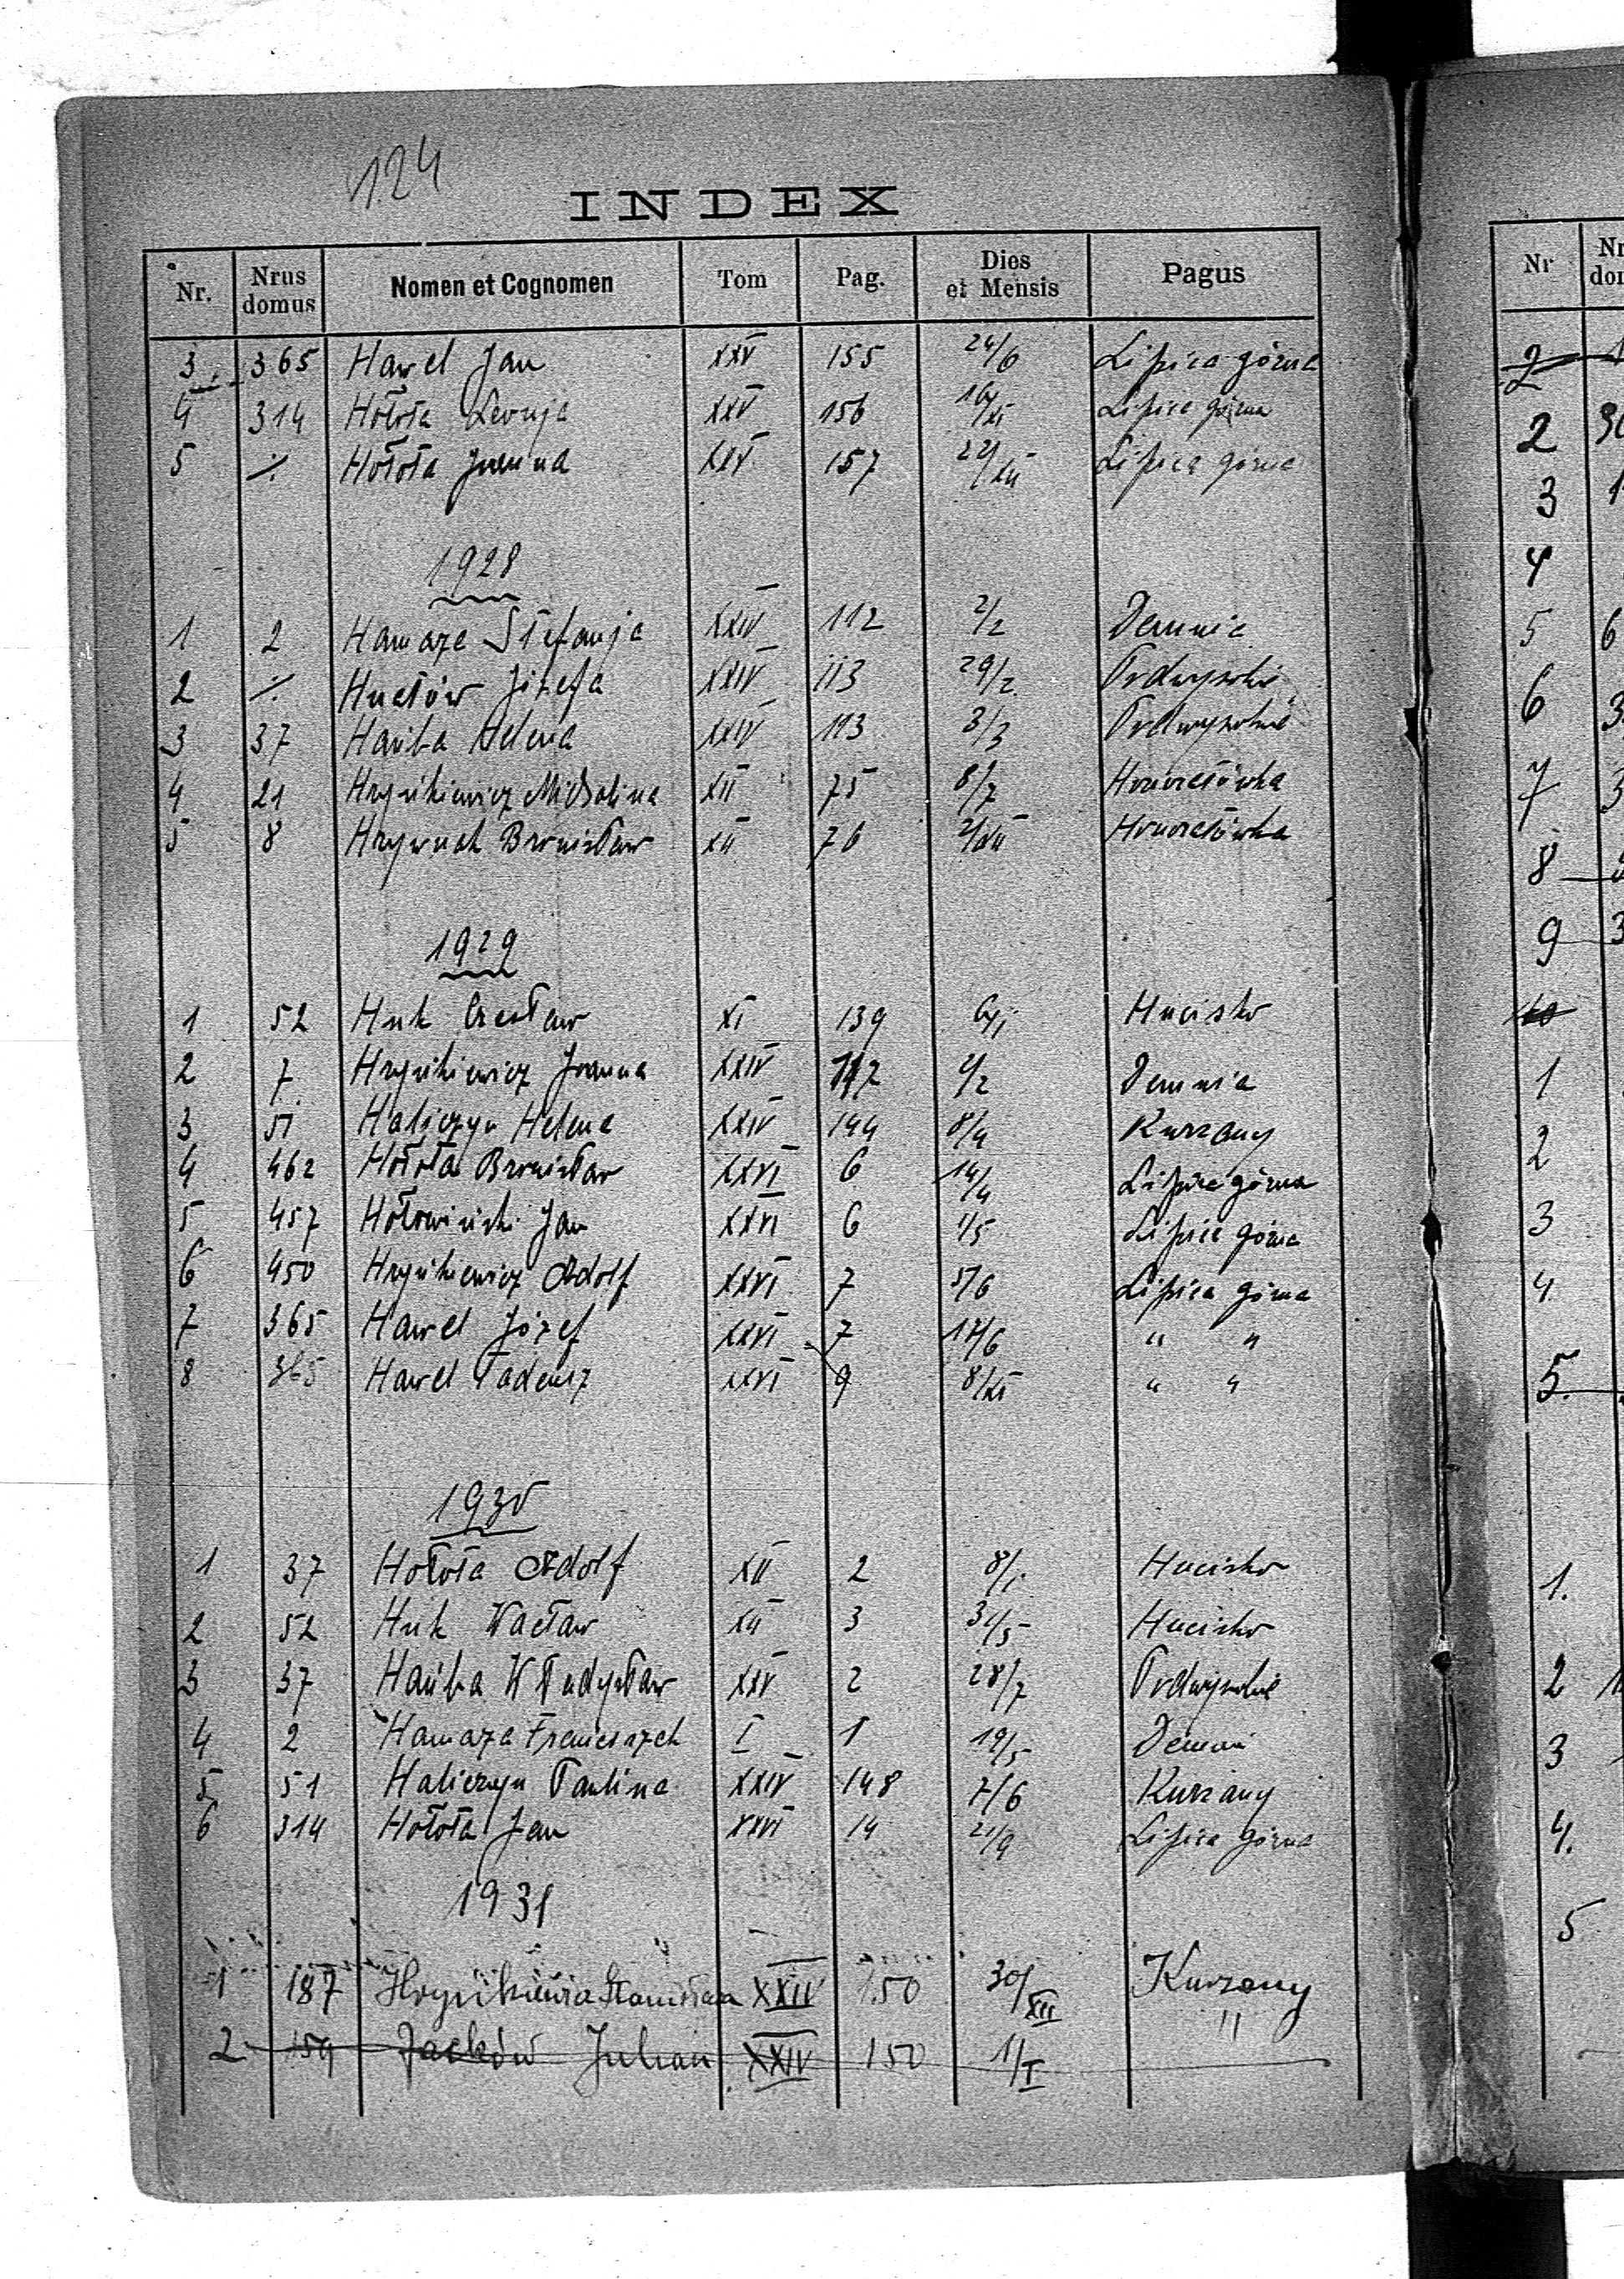 124
INDEX
Nr. Nrus domus Nomen et Cognomen Tom Pag. Dies et Mensis Pagus
3. 365 Hawel Jan XXV 155 24/6 Lipica górna
4 314 Hołota Leonja XXV 156 16/XI Lipica górna
5 ./. Hołota XXV 157 22/XII Lipica górna
1928
1 2 Hamaza Stefanja XXIV 112 2/2 Demnia
2 ./. Huców Józefa XXIV 113 29/2 Podwysokie
3 37 Hańba Helena XXIV 113 3/3 Podwysokie
4 21 Hryńkiewicz Michalina XII 75 8/7 Honoratówka
5 8 Hrywnak Bronisław XII 76 2/XII Honoratówka
1929
1 52 Huk Czesław XI 139 6/1 Hucisko
2 7 Hryńkiewicz Joanna XXIV 117 2/2 Demnia
3 51 Haliczyn Helena XXIV 144 8/4 Kurzany
4 462 Hołota Bronisław XXVI 6 14/4 Lipica górna
5 457 Hołowiński Jan XXVI 6 1/5 Lipica górna
6 450 Hryńkiewicz Adolf XXVI 7 5/6 Lipica górna
7 365 Hawel Józef XXVI 7 17/6 " "
8 365 Hawel Tadeusz XXVI 9 8/XI " "
1930
1 37 Hołota Adolf XII 2 8/1. Hucisko
2 52 Huk Wacław XII 3 31/5 Hucisko
3 37 Hańba Władysław XXV 2 28/7 Podwysokie
4 2 Hamaza Franciszek I 1 19/5 Demnia
5 51 Haliczyn Paulina XXIV 148 7/6 Kurzany
6 314 Hołota Jan XXVI 14 21/9 Lipica górna
1931
1 187 Stanisława XXIV 150 30/XII Kurzany
2 159 Jacków Julian XXIV 150 1/I "
Nr
2
2
3
4
5 6
6 3
7 3
8
9 3
10
1
2
3
4.
5.
1.
2 1
3 1
4.
5